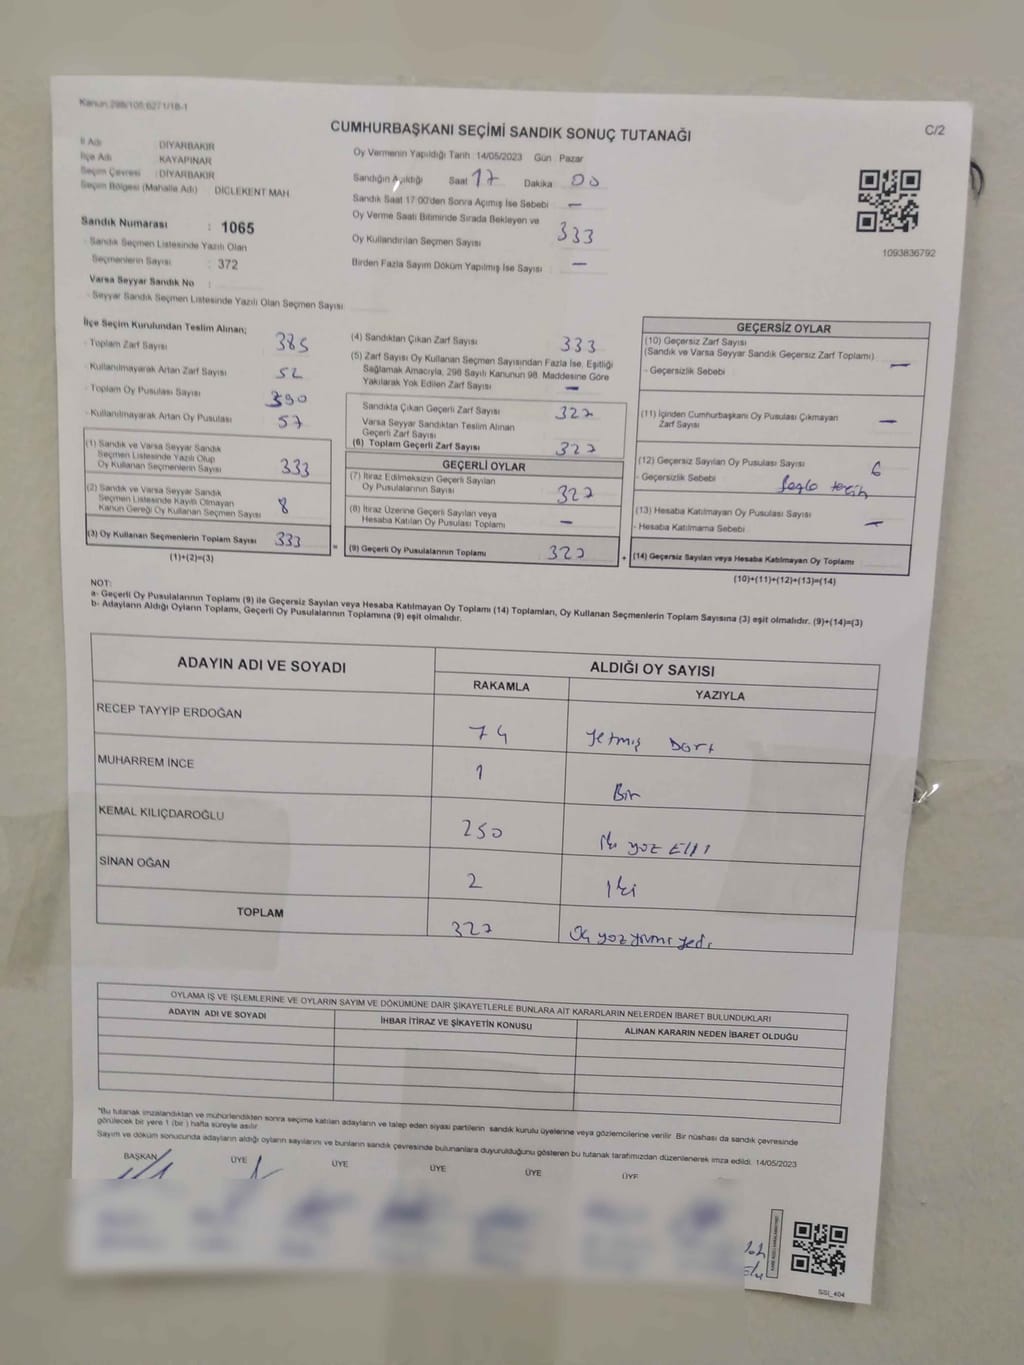 Kanun:298/105;6271/18-1
CUMHURBAŞKANI SEÇİMİ SANDIK SONUÇ TUTANAĞI
C/2
İl Adı : DİYARBAKIR
İlçe Adı : KAYAPINAR
Seçim Çevresi : DİYARBAKIR
Seçim Bölgesi (Mahalle Adı) : DİCLEKENT MAH.
Sandık Numarası : 1065
- Sandık Seçmen Listesinde Yazılı Olan
Seçmenlerin Sayısı : 372
Varsa Seyyar Sandık No :
- Seyyar Sandık Seçmen Listesinde Yazılı Olan Seçmen Sayısı:
Oy Vermenin Yapıldığı Tarih :14/05/2023 Gün : Pazar
Sandığın Açıldığı Saat 17 Dakika 00
Sandık Saat 17:00'den Sonra Açımış İse Sebebi : —
Oy Verme Saati Bitiminde Sırada Bekleyen ve
Oy Kullandırılan Seçmen Sayısı : 333
Birden Fazla Sayım Döküm Yapılmış İse Sayısı : —
1093836792
İlçe Seçim Kurulundan Teslim Alınan;
- Toplam Zarf Sayısı : 385
- Kullanılmayarak Artan Zarf Sayısı : 52
- Toplam Oy Pusulası Sayısı : 390
- Kullanılmayarak Artan Oy Pusulası : 57
(1) Sandık ve Varsa Seyyar Sandık
Seçmen Listesinde Yazılı Olup
Oy Kullanan Seçmenlerin Sayısı 333
(2) Sandık ve Varsa Seyyar Sandık
Seçmen Listesinde Kayıtlı Olmayan
Kanun Gereği Oy Kullanan Seçmen Sayısı 8
(3) Oy Kullanan Seçmenlerin Toplam Sayısı 333
(1)+(2)=(3)
(4) Sandıktan Çıkan Zarf Sayısı : 333
(5) Zarf Sayısı Oy Kullanan Seçmen Sayısından Fazla İse, Eşitliği
Sağlamak Amacıyla, 298 Sayılı Kanunun 98. Maddesine Göre
Yakılarak Yok Edilen Zarf Sayısı : —
Sandıkta Çıkan Geçerli Zarf Sayısı : 327
Varsa Seyyar Sandıktan Teslim Alınan
Geçerli Zarf Sayısı :
(6) Toplam Geçerli Zarf Sayısı : 327
GEÇERLİ OYLAR
(7) İtiraz Edilmeksizin Geçerli Sayılan
Oy Pusulalarının Sayısı : 327
(8) İtiraz Üzerine Geçerli Sayılan veya
Hesaba Katılan Oy Pusulası Toplamı : —
= (9) Geçerli Oy Pusulalarının Toplamı : 327 +
GEÇERSİZ OYLAR
(10) Geçersiz Zarf Sayısı
(Sandık ve Varsa Seyyar Sandık Geçersiz Zarf Toplamı) : —
- Geçersizlik Sebebi :
(11) İçinden Cumhurbaşkanı Oy Pusulası Çıkmayan
Zarf Sayısı : —
(12) Geçersiz Sayılan Oy Pusulası Sayısı : 6
- Geçersizlik Sebebi : fazla tercih
(13) Hesaba Katılmayan Oy Pusulası Sayısı : —
- Hesaba Katılmama Sebebi :
(14) Geçersiz Sayılan veya Hesaba Katılmayan Oy Toplamı :
(10)+(11)+(12)+(13)=(14)
NOT:
a- Geçerli Oy Pusulalarının Toplamı (9) ile Geçersiz Sayılan veya Hesaba Katılmayan Oy Toplamı (14) Toplamları, Oy Kullanan Seçmenlerin Toplam Sayısına (3) eşit olmalıdır. (9)+(14)=(3)
b- Adayların Aldığı Oyların Toplamı, Geçerli Oy Pusulalarının Toplamına (9) eşit olmalıdır.
ADAYIN ADI VE SOYADI ALDIĞI OY SAYISI
RAKAMLA YAZIYLA
RECEP TAYYİP ERDOĞAN 74 Yetmiş Dört
MUHARREM İNCE 1 Bir
KEMAL KILIÇDAROĞLU 250 İki yüz Elli
SİNAN OĞAN 2 İki
TOPLAM 327 Üç yüz yirmi yedi
OYLAMA İŞ VE İŞLEMLERİNE VE OYLARIN SAYIM VE DÖKÜMÜNE DAİR ŞİKAYETLERLE BUNLARA AİT KARARLARIN NELERDEN İBARET BULUNDUKLARI
ADAYIN ADI VE SOYADI İHBAR İTİRAZ VE ŞİKAYETİN KONUSU ALINAN KARARIN NEDEN İBARET OLDUĞU
*Bu tutanak imzalandıktan ve mühürlendikten sonra seçime katılan adayların ve talep eden siyasi partilerin sandık kurulu üyelerine veya gözlemcilerine verilir. Bir nüshası da sandık çevresinde
görülecek bir yere 1 (bir) hafta süreyle asılır.
Sayım ve döküm sonucunda adayların aldığı oyların sayılarını ve bunların sandık çevresinde bulunanlara duyurulduğunu gösteren bu tutanak tarafımızdan düzenlenerek imza edildi. 14/05/2023
BAŞKAN ÜYE ÜYE ÜYE ÜYE ÜYE
SSI_404